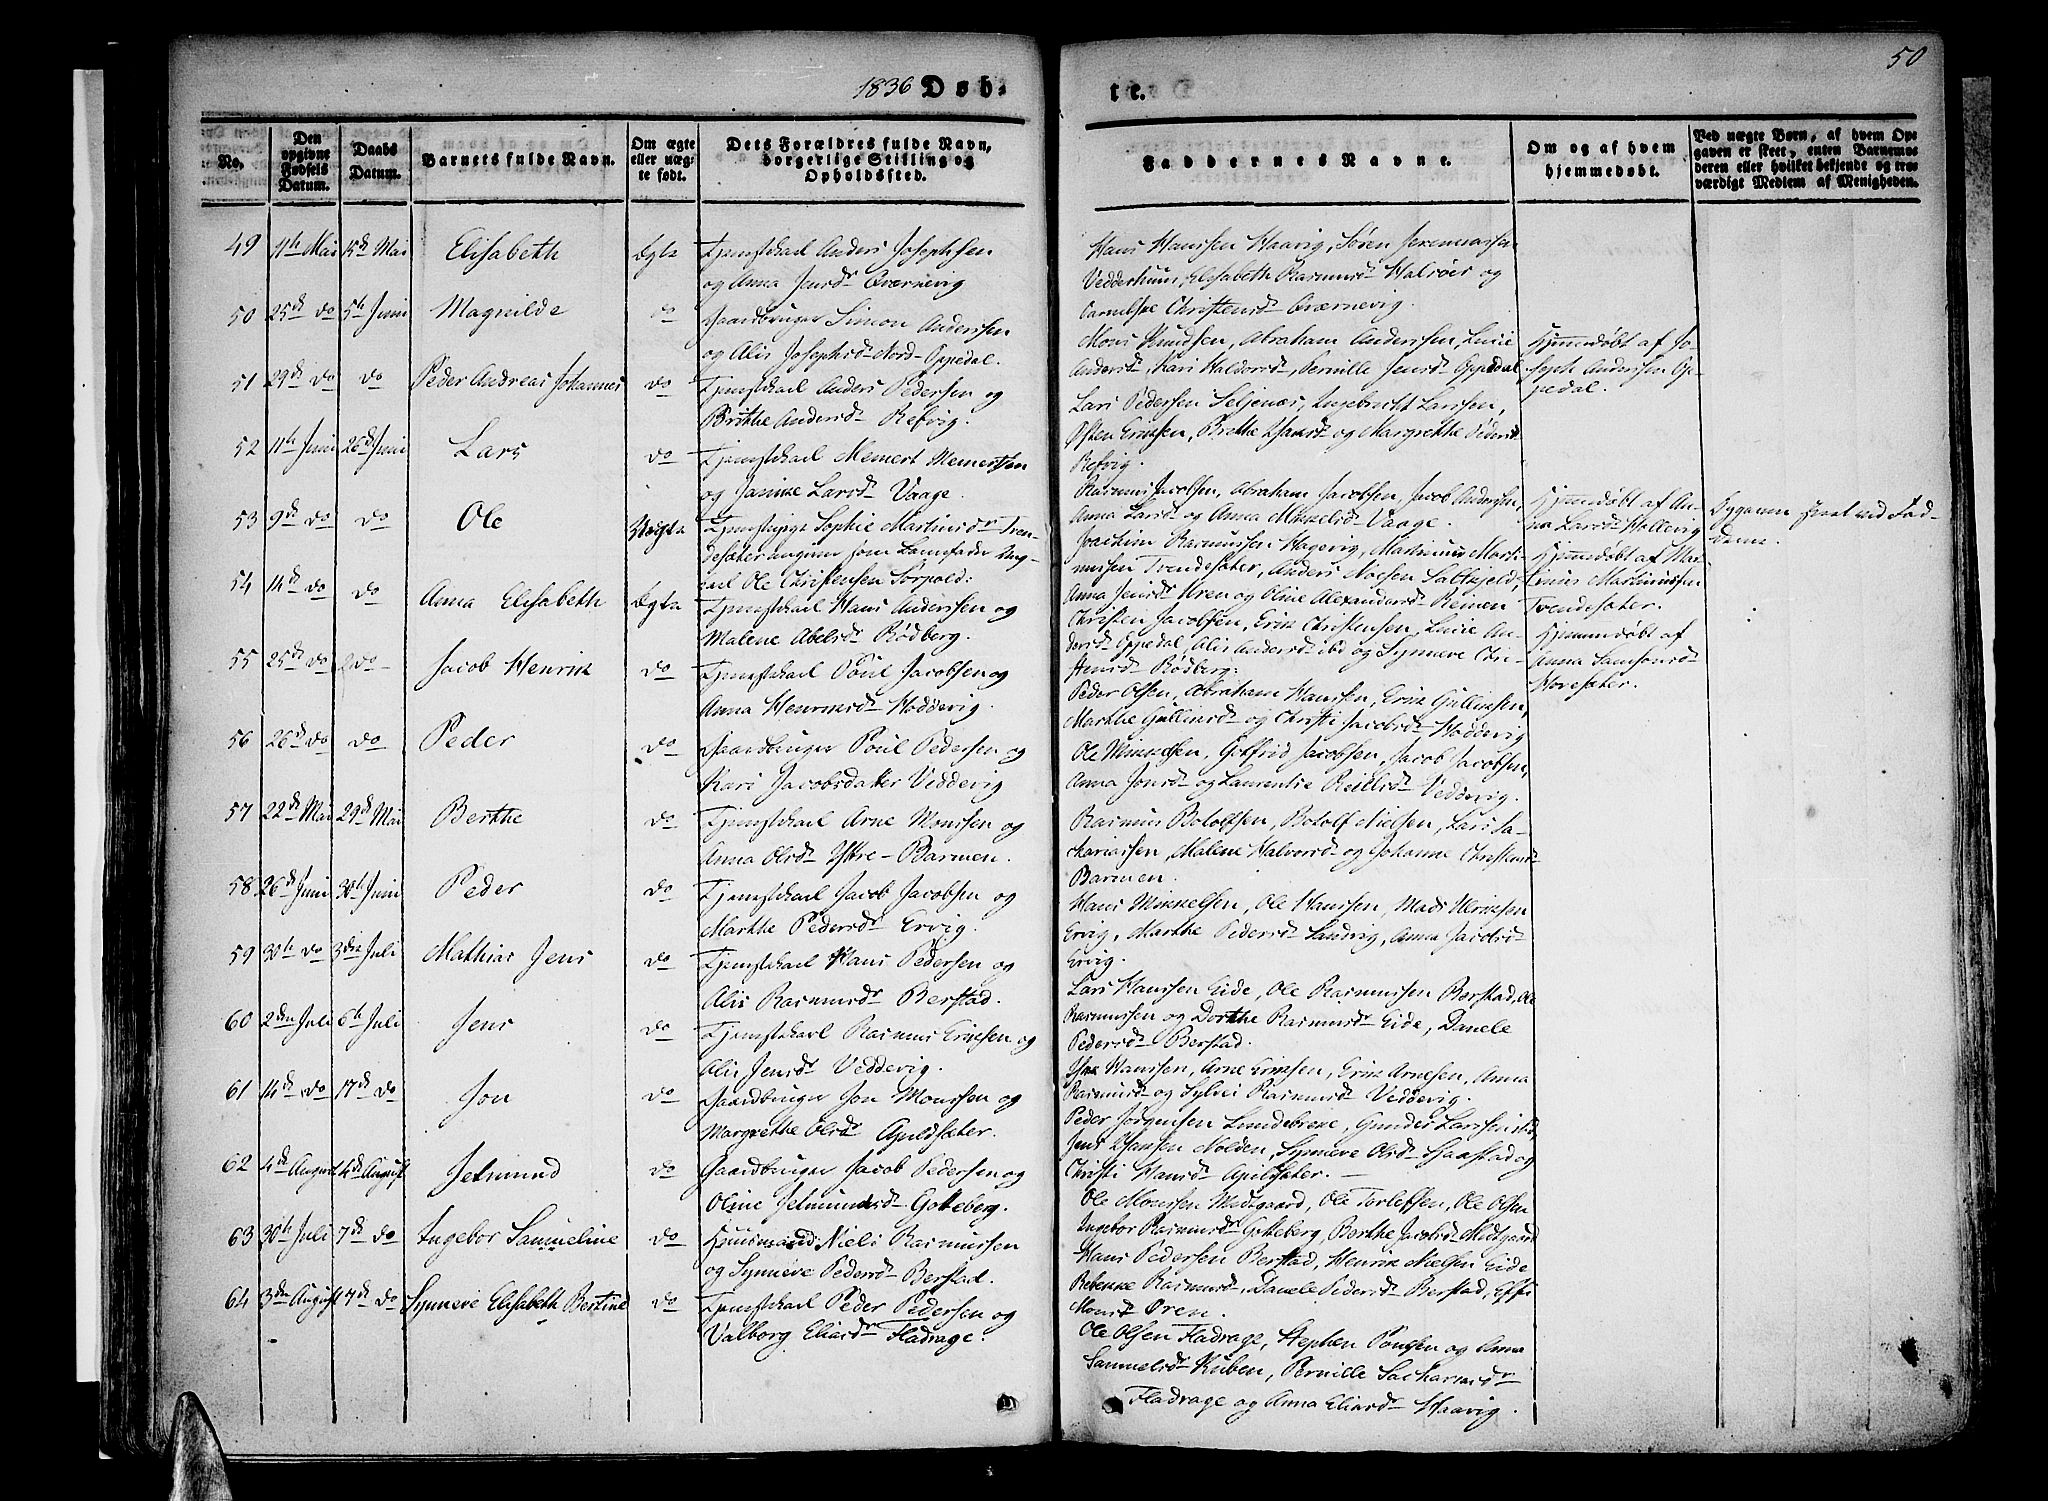 1836 Døb-
te.
50
No.
Den opgivne Fødsels Datum.
Daabs Datum.
Barnets fulde Navn.
Om ægte eller uæg- te født.
Dets Forældres fulde Navn, borgerlige Stilling og Opholdssted.
Faddernes Navne.
Om og af hvem hjemmedøbt.
Ved uægte Børn, af hvem Op- gaven er skeet, enten Barnemo- deren eller hvilket bekjendt og tro- værdigt Medlem af Menigheden.
49 11te Mai 15de Mai Elisabeth Ægte Tjenstkarl Anders Josephsen
og Anna Jensdr Qværnevig
Hans Hanssen Haavig, Søren Jeremiassen
Vedderhuus, Elisabeth Rasmusd Halsør og
Christensd Qværnevig.
50 25de do 5te Juni Magnilde do Gaardbruger Simon Anderssen
og Alis Josephsd Nord-Oppedal.
Mons Knudsen, Abraham Anderssen, Lucie
Andersd, Kari Haldorsd, Pernille Jensd Oppedal
Hjemmedøbt af Jo-
seph Anderssen Op-
pedal.
51 29de do do Peder Andreas Johannes do Tjenstkarl Anders Pedersen og
Birthe Andersd Refvig.
Lars Pedersen Seljenæs, Ingebricht Larssen,
Østen Erikssen, Birthe Hansd og Margrethe Pedersd
Refvig.
52 11te Juni 26de Juni Lars do Tjenstkarl Meinert Meinertsen
og Janike Larsd Vaage.
Rasmus Jacobsen, Abraham Jacobsen, Jacob Anderssen,
Anna Larsd og Anna Mikkelsd Vaage.
Hjemmedøbt af An-
na Larsd Hollevig
53 9de do do Ole Uægte Tjenstepige Sophie Martinusdr Tren-
desæter angiver som Barnefader Ung-
karl Ole Christensen Sørpold:
Joachim Rasmussen Hagevig, Martinus Marti-
nussen Trendesæter, Anders Nielsen Saltskjeld,
Anna Jensd Aren og Oline Alexandersd Reinen
Hjemmedøbt af Mar-
tinus Martinussen
Trendesæter.
Opgaven skeet ved Fad-
derne.
54 14de do do Anna Elisabeth Ægte Tjenstkarl Hans Anderssen og
Malene Abelsd Rødberg.
Christen Jacobsen, Erik Christensen, Lucie An-
dersd Oppedal, Alis Andersd ibd og Synneve Chri-
stensd Rødberg:
Hjemmedøbt af
Anna Samsonsd
Hovesæter.
55 25de do do Jacob Henrik do Tjenstkarl Poul Jacobsen og
Anna Henriksd Hoddevig.
Peder Olsen, Abraham Hanssen, Erik Gulliksen,
Marthe Gulliksd og Christi Jacobsd Hoddevig
56 26de do do Peder do Gaardbruger Poul Pedersen og
Kari Jacobsdatter Veddevig
Ole Mikkelsen, Gotfrid Jacobsen, Jacob Jacobsen,
Anna Jonsd og Laurentse Veddevig.
57 22de Mai 29de Mai Berthe do Tjenstkarl Arne Monssen og
Anna Olsd Ytre-Barmen.
Rasmus Botolfsen, Botolf Nielsen, Lars Sa-
chariassen, Malene Halvorsd og Johanne Christensd
Barmen.
58 26de Juni 30te Juni Peder do Tjenstkarl Jacob Jacobsen og
Marthe Pedersd Ervig.
Hans Mikkelsen, Ole Hanssen, Mads Eriksen
Ervig, Marthe Pedersd Sandvig, Anna Jacobsd
Ervig.
59 30te do 3die Juli Mathias Jens do Tjenstkarl Hans Pedersen og
Alis Rasmusdr Berstad.
Lars Hanssen Eide, Ole Rasmussen Berstad, Ole
Rasmussen og Dorthe Rasmusdr Eide, Danele
Pedersd Berstad.
60 2den Juli 6te Juli Jens do Tjenstkarl Rasmus Eriksen og
Alis Jensd Veddevig.
Hanssen, Arne Eriksen, Erik Arnesen, Anna
Rasmusd og Sylvei Rasmusd Veddevig.
61 14de do 17de do Jon do Gaardbruger Jon Monssen og
Margrethe Olsd Apuldsæter.
Peder Jørgensen Lundebrekke, Gunder Larssen ibd,
Jens Hansen Nolden, Synneve Olsd Haastad og
Christi Hansd Apulsæter.
62 4de August 4de August Jetmund do Gaardbruger Jacob Pedersen og
Oline Jetmundsd Gotteberg.
Ole Monssen Midtgaard, Ole Torlefsen, Ole Olsen
Ingebor Rasmusdr Gotteberg, Berthe Jacobsd Midtgaard
63 30te Juli 7de do Ingebor Samueline do Huusmand Niels Rasmussen
og Synneve Pedersd Berstad.
Hans Pedersen Berstad, Henrik Nielsen Eide
Rebekke Rasmusd, Danele Pedersd Berstad, Effi
Monsd Øren.
64 3die August 7de do Synneve Elisabeth Bertine do Tjenstkarl Peder Pedersen og
Valborg Eliasdr Fladrage.
Ole Olsen Fladrage, Stephen Poulsen og Anna
Samuelsd Kuben, Pernille Sachariasdr
Fladrage og Anna Eliasd Haavig.